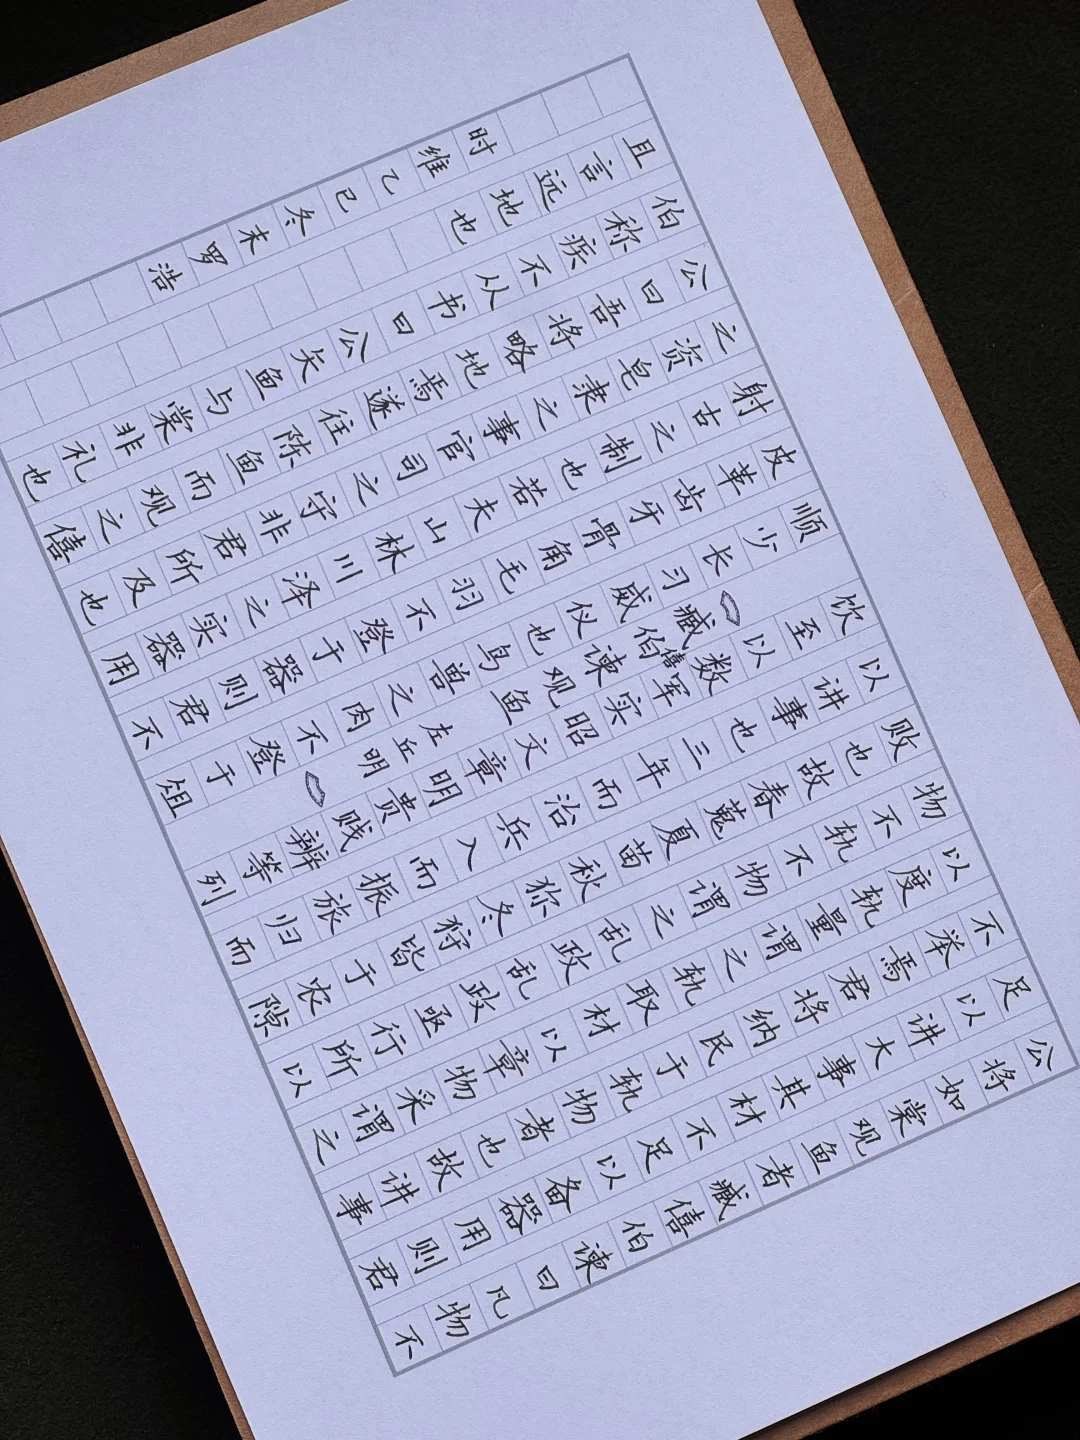 公将如棠观鱼者臧僖伯谏曰凡物不
足以讲大事其材不足以备器用则君
不举焉君将纳民于轨物者也故讲事
以度轨量谓之轨取材以章物采谓之
物不轨不物谓之乱政乱政亟行所以
败也故春蒐夏苗秋狝冬狩皆于农隙
以讲事也三年而治兵入而振旅归而
饮至以数军实昭文章明贵贱辨等列
臧僖伯谏观鱼 左丘明
顺少长习威仪也鸟兽之肉不登于俎
皮革齿牙骨角毛羽不登于器则君不
射古之制也若夫山林川泽之实器用
之资皂隶之事官司之守非君所及也
公曰吾将略地焉遂往陈鱼而观之僖
伯称疾不从书曰公矢鱼与棠非礼也
且言远地也
时维乙巳冬末罗浩